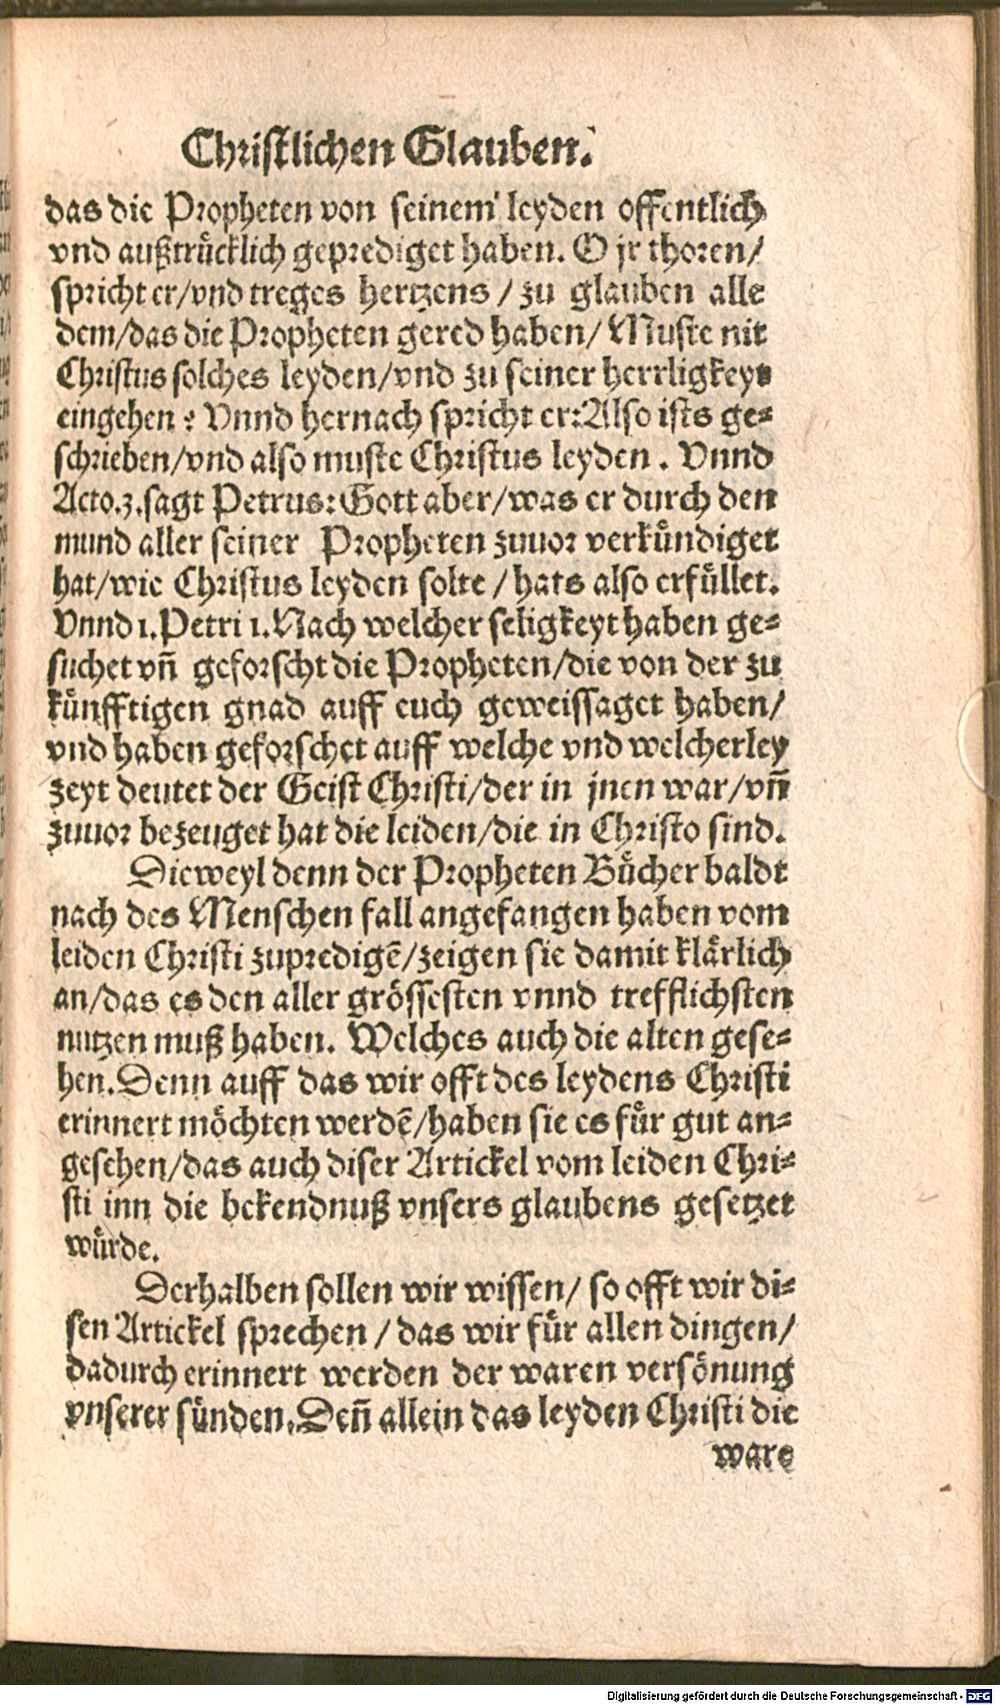 Christlichen Glauben.
das die Propheten von seinem leyden offentlich
vnd außtruͤcklich geprediget haben. O jr thoren/
spricht er/vnd treges hertzens / zu glauben alle
dem/das die Propheten gered haben/ Muste nit
Christus solches leyden/vnd zu seiner herrligkeyt
eingehen? Vnnd hernach spricht er: Also ists ge⸗
schrieben/vnd also muste Christus leyden. Vnnd
Acto.3.sagt Petrus: Gott aber/was er durch den
mund aller seiner Propheten zuuor verkuͤndiget
hat/wie Christus leyden solte / hats also erfuͤllet.
Vnnd 1.Petri 1.Nach welcher seligkeyt haben ge⸗
suchet vñ geforscht die Propheten/die von der zu
kuͤnfftigen gnad auff euch geweissaget haben/
vnd haben geforschet auff welche vnd welcherley
zeyt deutet der Geist Christi/der in jnen war/vñ
zuuor bezeuget hat die leiden/die in Christo sind.
Dieweyl denn der Propheten Buͤcher baldt
nach des Menschen fall angefangen haben vom
leiden Christi zupredigē/zeigen sie damit klaͤrlich
an/das es den aller groͤssesten vnnd trefflichsten
nutzen muß haben. Welches auch die alten gese⸗
hen.Denn auff das wir offt des leydens Christi
erinnert moͤchten werdē/haben sie es fuͤr gut an⸗
gesehen/das auch diser Artickel vom leiden Chri⸗
sti inn die bekendnuß vnsers glaubens gesetzet
wuͤrde.
Derhalben sollen wir wissen/ so offt wir di⸗
sen Artickel sprechen / das wir fuͤr allen dingen/
dadurch erinnert werden der waren versoͤnung
vnserer suͤnden.Deñ allein das leyden Christi die
ware
Digitalisierung gefördert durch die Deutsche Forschungsgemeinschaft - DFG